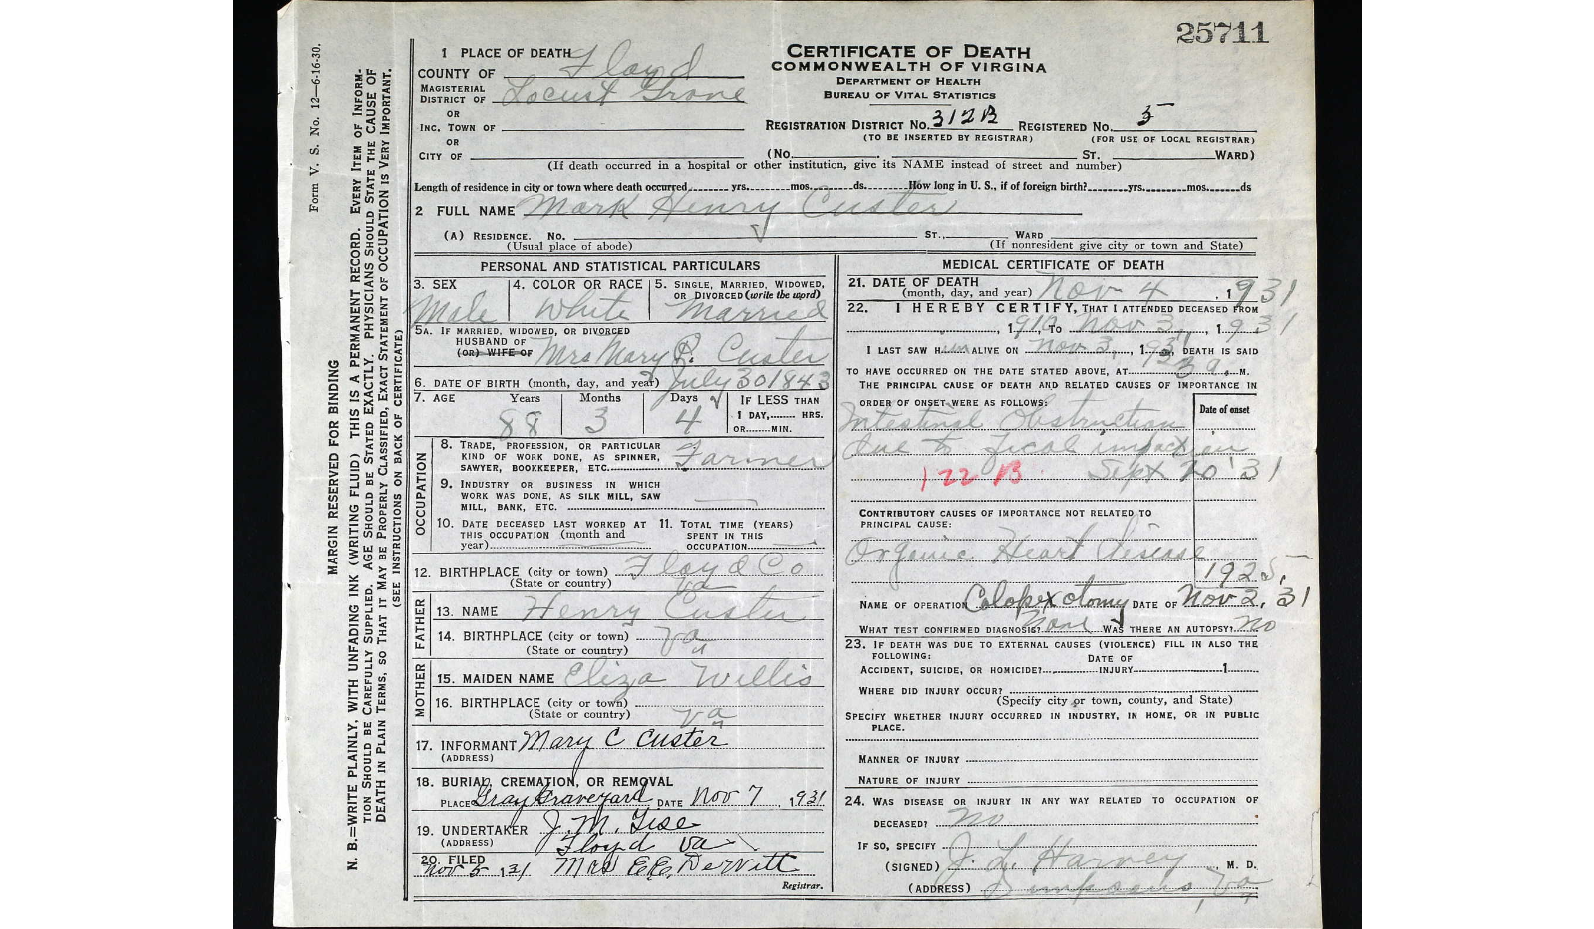 25711
Form V. S. No. 12—6-16-30.
MARGIN RESERVED FOR BINDING
N. B.—WRITE PLAINLY, WITH UNFADING INK (WRITING FLUID) THIS IS A PERMANENT RECORD. EVERY ITEM OF INFORM-
TION SHOULD BE CAREFULLY SUPPLIED. AGE SHOULD BE STATED EXACTLY. PHYSICIANS SHOULD STATE THE CAUSE OF
DEATH IN PLAIN TERMS, SO THAT IT MAY BE PROPERLY CLASSIFIED, EXACT STATEMENT OF OCCUPATION IS VERY IMPORTANT.
(SEE INSTRUCTIONS ON BACK OF CERTIFICATE)
1 PLACE OF DEATH
COUNTY OF Floyd
MAGISTERIAL
DISTRICT OF Locust Grove
OR
INC. TOWN OF
OR
CITY OF
CERTIFICATE OF DEATH
COMMONWEALTH OF VIRGINIA
DEPARTMENT OF HEALTH
BUREAU OF VITAL STATISTICS
REGISTRATION DISTRICT NO. 312B REGISTERED NO. 5
(TO BE INSERTED BY REGISTRAR) (FOR USE OF LOCAL REGISTRAR)
(No. ST. WARD)
(If death occurred in a hospital or other institution, give its NAME instead of street and number)
Length of residence in city or town where death occurred yrs. mos. ds. How long in U. S., if of foreign birth? yrs. mos. ds
2 FULL NAME Mark Henry Custer
(A) RESIDENCE. NO. ST., WARD
(Usual place of abode) (If nonresident give city or town and State)
PERSONAL AND STATISTICAL PARTICULARS
3. SEX 4. COLOR OR RACE 5. SINGLE, MARRIED, WIDOWED,
OR DIVORCED (write the word)
Male White Married
5A. IF MARRIED, WIDOWED, OR DIVORCED
HUSBAND OF
(OR) WIFE OF Mrs Mary Custer
6. DATE OF BIRTH (month, day, and year) July 30 1843
7. AGE Years Months Days IF LESS THAN
88 3 4 1 DAY, HRS.
OR MIN.
OCCUPATION
8. TRADE, PROFESSION, OR PARTICULAR
KIND OF WORK DONE, AS SPINNER,
SAWYER, BOOKKEEPER, ETC. Farmer
9. INDUSTRY OR BUSINESS IN WHICH
WORK WAS DONE, AS SILK MILL, SAW
MILL, BANK, ETC.
10. DATE DECEASED LAST WORKED AT 11. TOTAL TIME (YEARS)
THIS OCCUPATION (month and SPENT IN THIS
year) OCCUPATION
12. BIRTHPLACE (city or town) Floyd Co
(State or country) Va
FATHER
13. NAME Henry Custer
14. BIRTHPLACE (city or town) Va
(State or country)
MOTHER
15. MAIDEN NAME Eliza Willis
16. BIRTHPLACE (city or town)
(State or country) Va
17. INFORMANT Mary C Custer
(ADDRESS)
18. BURIAL, CREMATION, OR REMOVAL
PLACE Gray Graveyard DATE Nov 7, 1931
19. UNDERTAKER J. M.
(ADDRESS) Floyd Va
20. FILED
Nov 5 1 31 Mrs
Registrar.
MEDICAL CERTIFICATE OF DEATH
21. DATE OF DEATH
(month, day, and year) Nov 4, 1931
22. I HEREBY CERTIFY, THAT I ATTENDED DECEASED FROM
, 1910 TO Nov 3, 1931
I LAST SAW HIM ALIVE ON Nov 3, 1931, DEATH IS SAID
TO HAVE OCCURRED ON THE DATE STATED ABOVE, AT M.
THE PRINCIPAL CAUSE OF DEATH AND RELATED CAUSES OF IMPORTANCE IN
ORDER OF ONSET WERE AS FOLLOWS: Date of onset
Intestinal Obstruction
due to fical impaction
122 B Sept 20 '31
CONTRIBUTORY CAUSES OF IMPORTANCE NOT RELATED TO
PRINCIPAL CAUSE:
Organic Heart Disease
1925
NAME OF OPERATION Colopexotomy DATE OF Nov 2, 31
WHAT TEST CONFIRMED DIAGNOSIS? None WAS THERE AN AUTOPSY? No
23. IF DEATH WAS DUE TO EXTERNAL CAUSES (VIOLENCE) FILL IN ALSO THE
FOLLOWING: DATE OF
ACCIDENT, SUICIDE, OR HOMICIDE? INJURY 1
WHERE DID INJURY OCCUR?
(Specify city or town, county, and State)
SPECIFY WHETHER INJURY OCCURRED IN INDUSTRY, IN HOME, OR IN PUBLIC
PLACE.
MANNER OF INJURY
NATURE OF INJURY
24. WAS DISEASE OR INJURY IN ANY WAY RELATED TO OCCUPATION OF
DECEASED? No
IF SO, SPECIFY
(SIGNED) J. L. Harvey, M. D.
(ADDRESS) Simpsons, Va